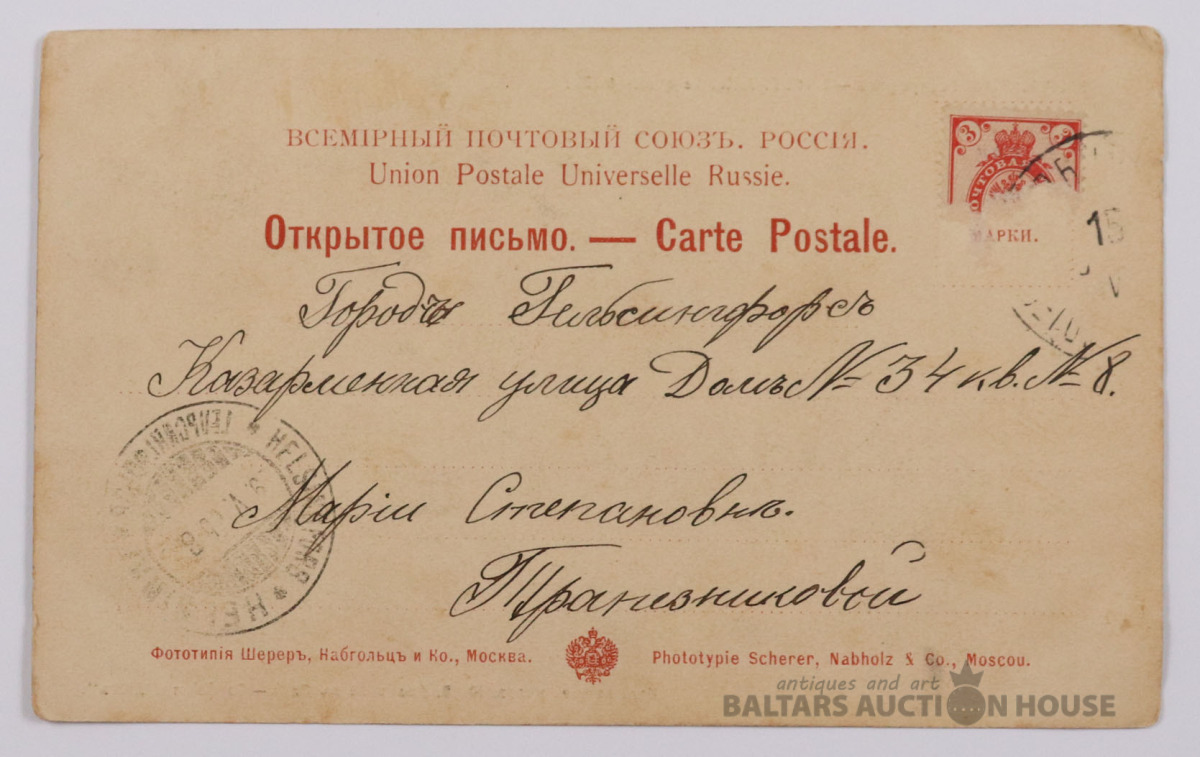 ВСЕМІРНЫЙ ПОЧТОВЫЙ СОЮЗЪ. РОССІЯ.
Union Postale Universelle Russie.
Открытое письмо. — Carte Postale.
3
ПОЧТОВАЯ
МАРКИ.
15
Городъ Гельсингфорсъ
Казарменная улица Домъ № 34 кв. № 8.
HELSINGFORS
Маріи Степановнѣ.
Трапезниковой
Фототипія Шереръ, Набгольцъ и Ко., Москва.
Phototypie Scherer, Nabholz & Co., Moscou.
antiques and art
BALTARS AUCTION HOUSE